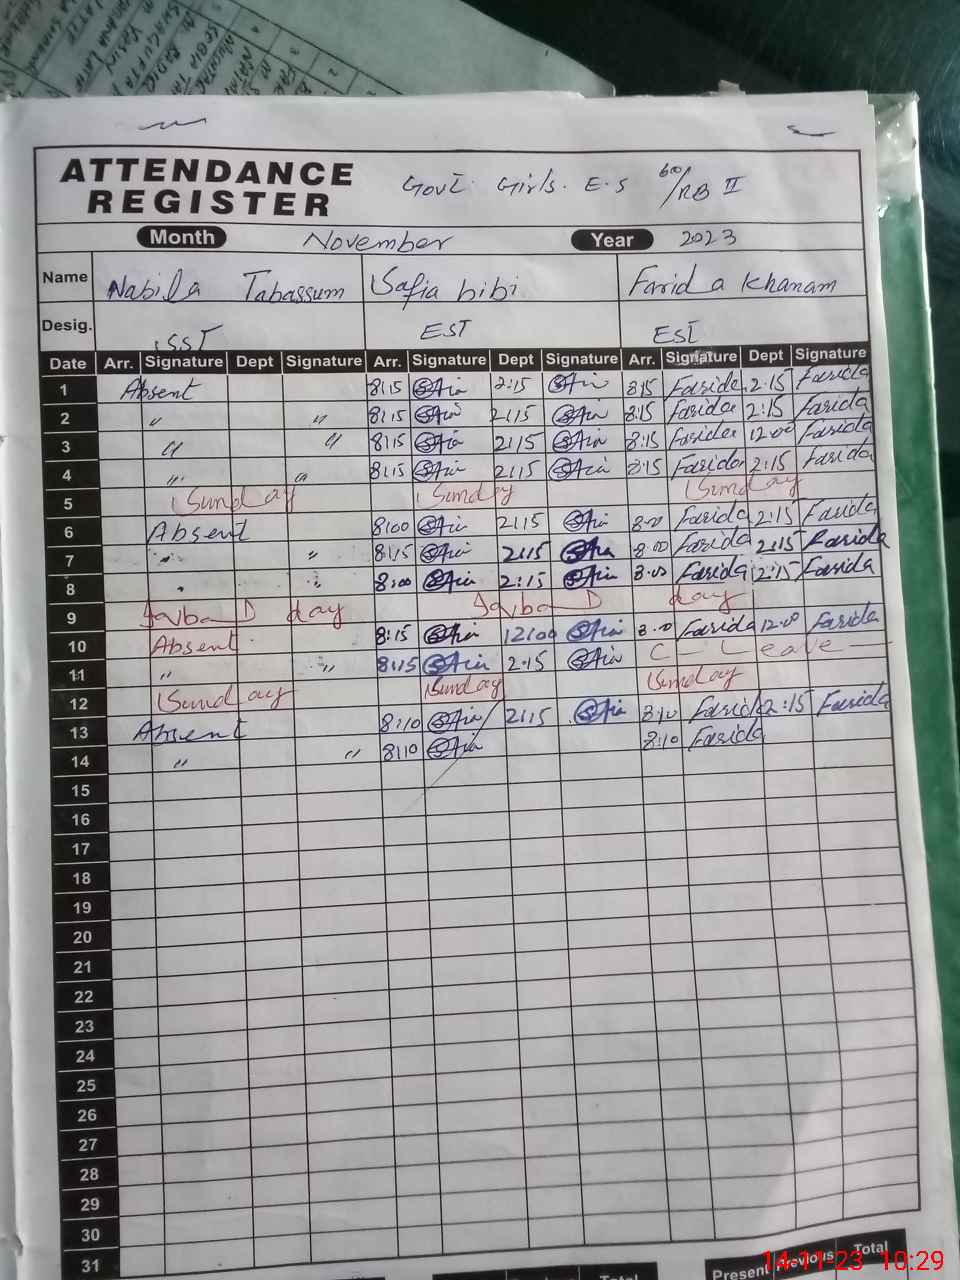 ATTENDANCE
REGISTER
Govt. Girls. E.S 60/RB II
Month November Year 2023
Name Nabila Tabassum Safia bibi Farida Khanam
Desig. SST EST EST
Date Arr. Signature Dept Signature Arr. Signature Dept Signature Arr. Signature Dept Signature
1 Absent 8:15 Safia 2:15 Safia 8:15 Farida 2:15 Farida
2 〃 〃 8:15 Safia 2:15 Safia 8:15 Farida 2:15 Farida
3 〃 〃 8:15 Safia 2:15 Safia 8:15 Farida 12:00 Farida
4 〃 〃 8:15 Safia 2:15 Safia 8:15 Farida 2:15 Farida
5 Sunday Sunday Sunday
6 Absent 8:00 Safia 2:15 Safia 8:00 Farida 2:15 Farida
7 〃 〃 8:15 Safia 2:15 Safia 8:00 Farida 2:15 Farida
8 〃 〃 8:00 Safia 2:15 Safia 8:00 Farida 2:15 Farida
9 Iqba D day Iqba D day
10 Absent 8:15 Safia 12:00 Safia 8:00 Farida 12:00 Farida
11 〃 〃 8:15 Safia 2:15 Safia C - Leave
12 Sunday Sunday Sunday
13 Absent 8:10 Safia 2:15 Safia 8:10 Farida 2:15 Farida
14 〃 〃 8:10 Safia 8:10 Farida
15
16
17
18
19
20
21
22
23
24
25
26
27
28
29
30
31
Present Previous Total
14-11-23 10:29